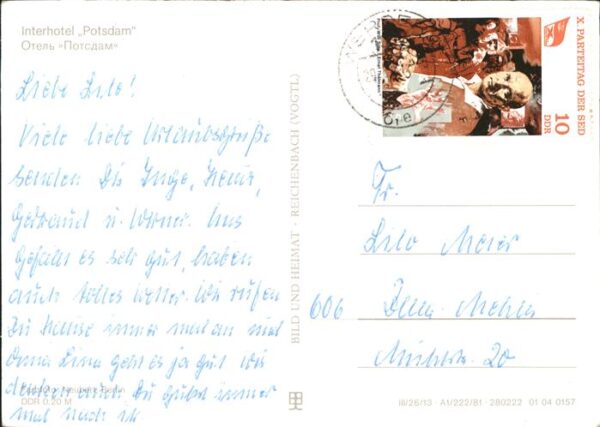 Interhotel „Potsdam"
Отель »Потсдам«
Liebe Lilo!
Viele liebe Urlaubsgrüße
senden Dir Inge, Heinz,
Gertraud u. Werner. Uns
gefällt es sehr gut, haben
auch tolles Wetter. Wir rufen
zu Hause immer mal an und
Oma Lina geht es ja gut. Wir
denken auch Du gehst immer
mal nach ihr
DDR 0,20 M
BILD UND HEIMAT · REICHENBACH (VOGTL)
X. PARTEITAG DER SED
10
DDR
Fr.
Lilo Meier
606 Zella-Mehlis
20
III/26/13 · A1/222/81 · 280222 01 04 0157